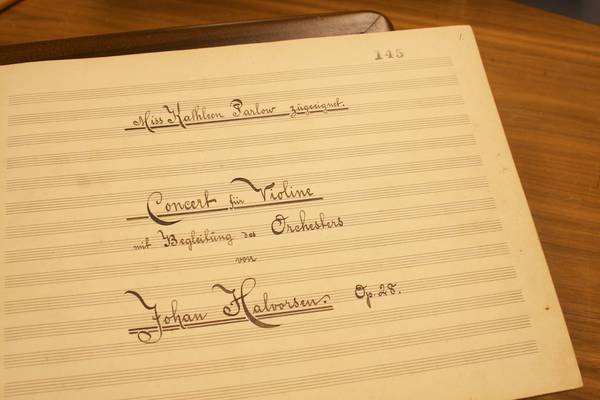 145
1.
Miss Kathleen Parlow zugeeignet.
Concert für Violine
mit Begleitung des Orchesters
von
Johan Halvorsen. Op. 28.